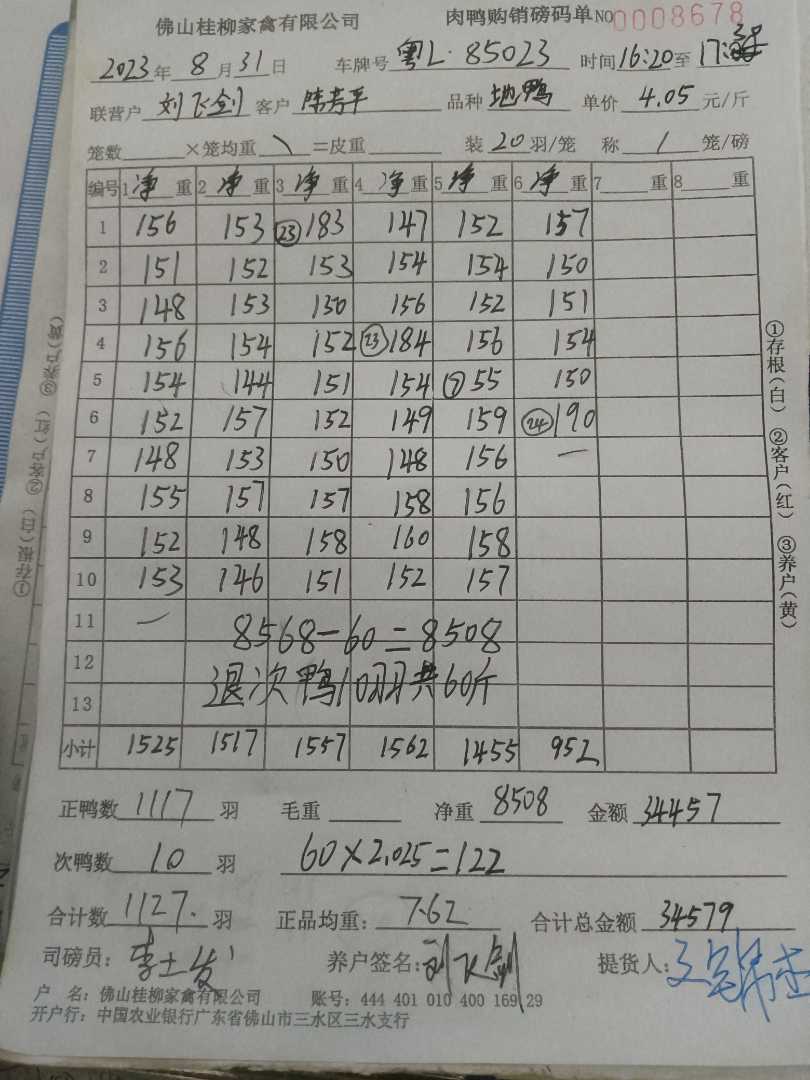 佛山桂柳家禽有限公司 肉鸭购销磅码单NO0008678
2023年8月31日 车牌号 粤L·85023 时间16:20至17:
联营户 刘飞剑 客户 陈 平 品种 地鸭 单价 4.05 元/斤
笼数 ×笼均重 \ =皮重 装 20 羽/笼 称 1 笼/磅
编号 1净重 2净重 3净重 4净重 5净重 6净重 7 重 8 重
1 156 153 ㉓183 147 152 157
2 151 152 153 154 154 150
3 148 153 150 156 152 151
4 156 154 152 ㉓184 156 154
5 154 144 151 154 ⑦55 150
6 152 157 152 149 159 ㉔190
7 148 153 150 148 156 —
8 155 157 157 158 156
9 152 148 158 160 158
10 153 146 151 152 157
11 — 8568-60=8508
12 退次鸭10羽共60斤
13
小计 1525 1517 1557 1562 1455 952
①存根(白) ②客户(红) ③养户(黄)
①存根(白) ②客户(红) ③养户(黄)
正鸭数 1117 羽 毛重 净重 8508 金额 34457
次鸭数 10 羽 60×2.025=122
合计数 1127. 羽 正品均重: 7.62 合计总金额 34579
司磅员: 李土发 养户签名: 刘飞剑 提货人:
户 名: 佛山桂柳家禽有限公司 账号: 444 401 010 400 169 29
开户行: 中国农业银行广东省佛山市三水区三水支行